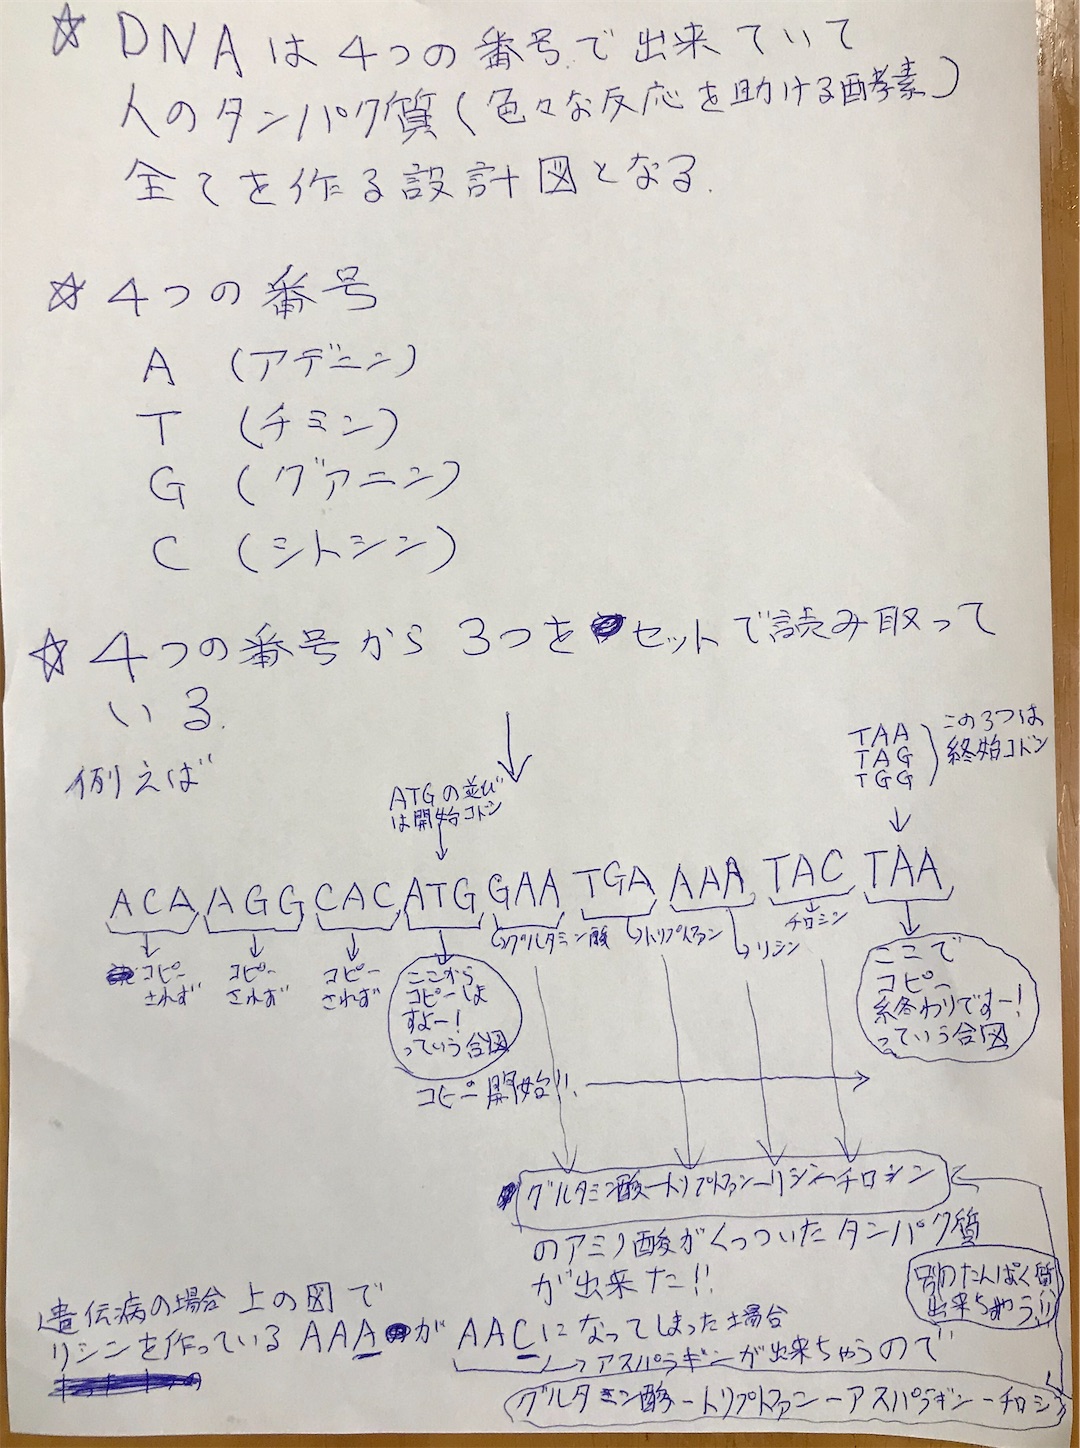 ☆ DNAは4つの番号で出来ていて
人のタンパク質(色々な反応を助ける酵素)
全てを作る設計図となる.
☆ 4つの番号
A (アデニン)
T (チミン)
G (グアニン)
C (シトシン)
☆ 4つの番号から3つをセットで読み取って
いる.
例えば
ATGの並び
は開始コドン
TAA
TAG
TGG
この3つは
終始コドン
ACA AGG CAC ATG GAA TGA AAA TAC TAA
グルタミン酸
トリプトファン
リシン
チロシン
コピー
されず
コピー
されず
コピー
されず
ここから
コピーしま
すよー!
っていう合図
ここで
コピー
終わりですー!
っていう合図
コピー開始!!
グルタミン酸ートリプトファンーリシンーチロシン
のアミノ酸がくっついたタンパク質
が出来た!!
別のたんぱく質
出来ちゃう!!
遺伝病の場合 上の図で
リシンを作っているAAAがAACになってしまった場合
アスパラギンが出来ちゃうので
グルタミン酸ートリプトファンーアスパラギンーチロシン